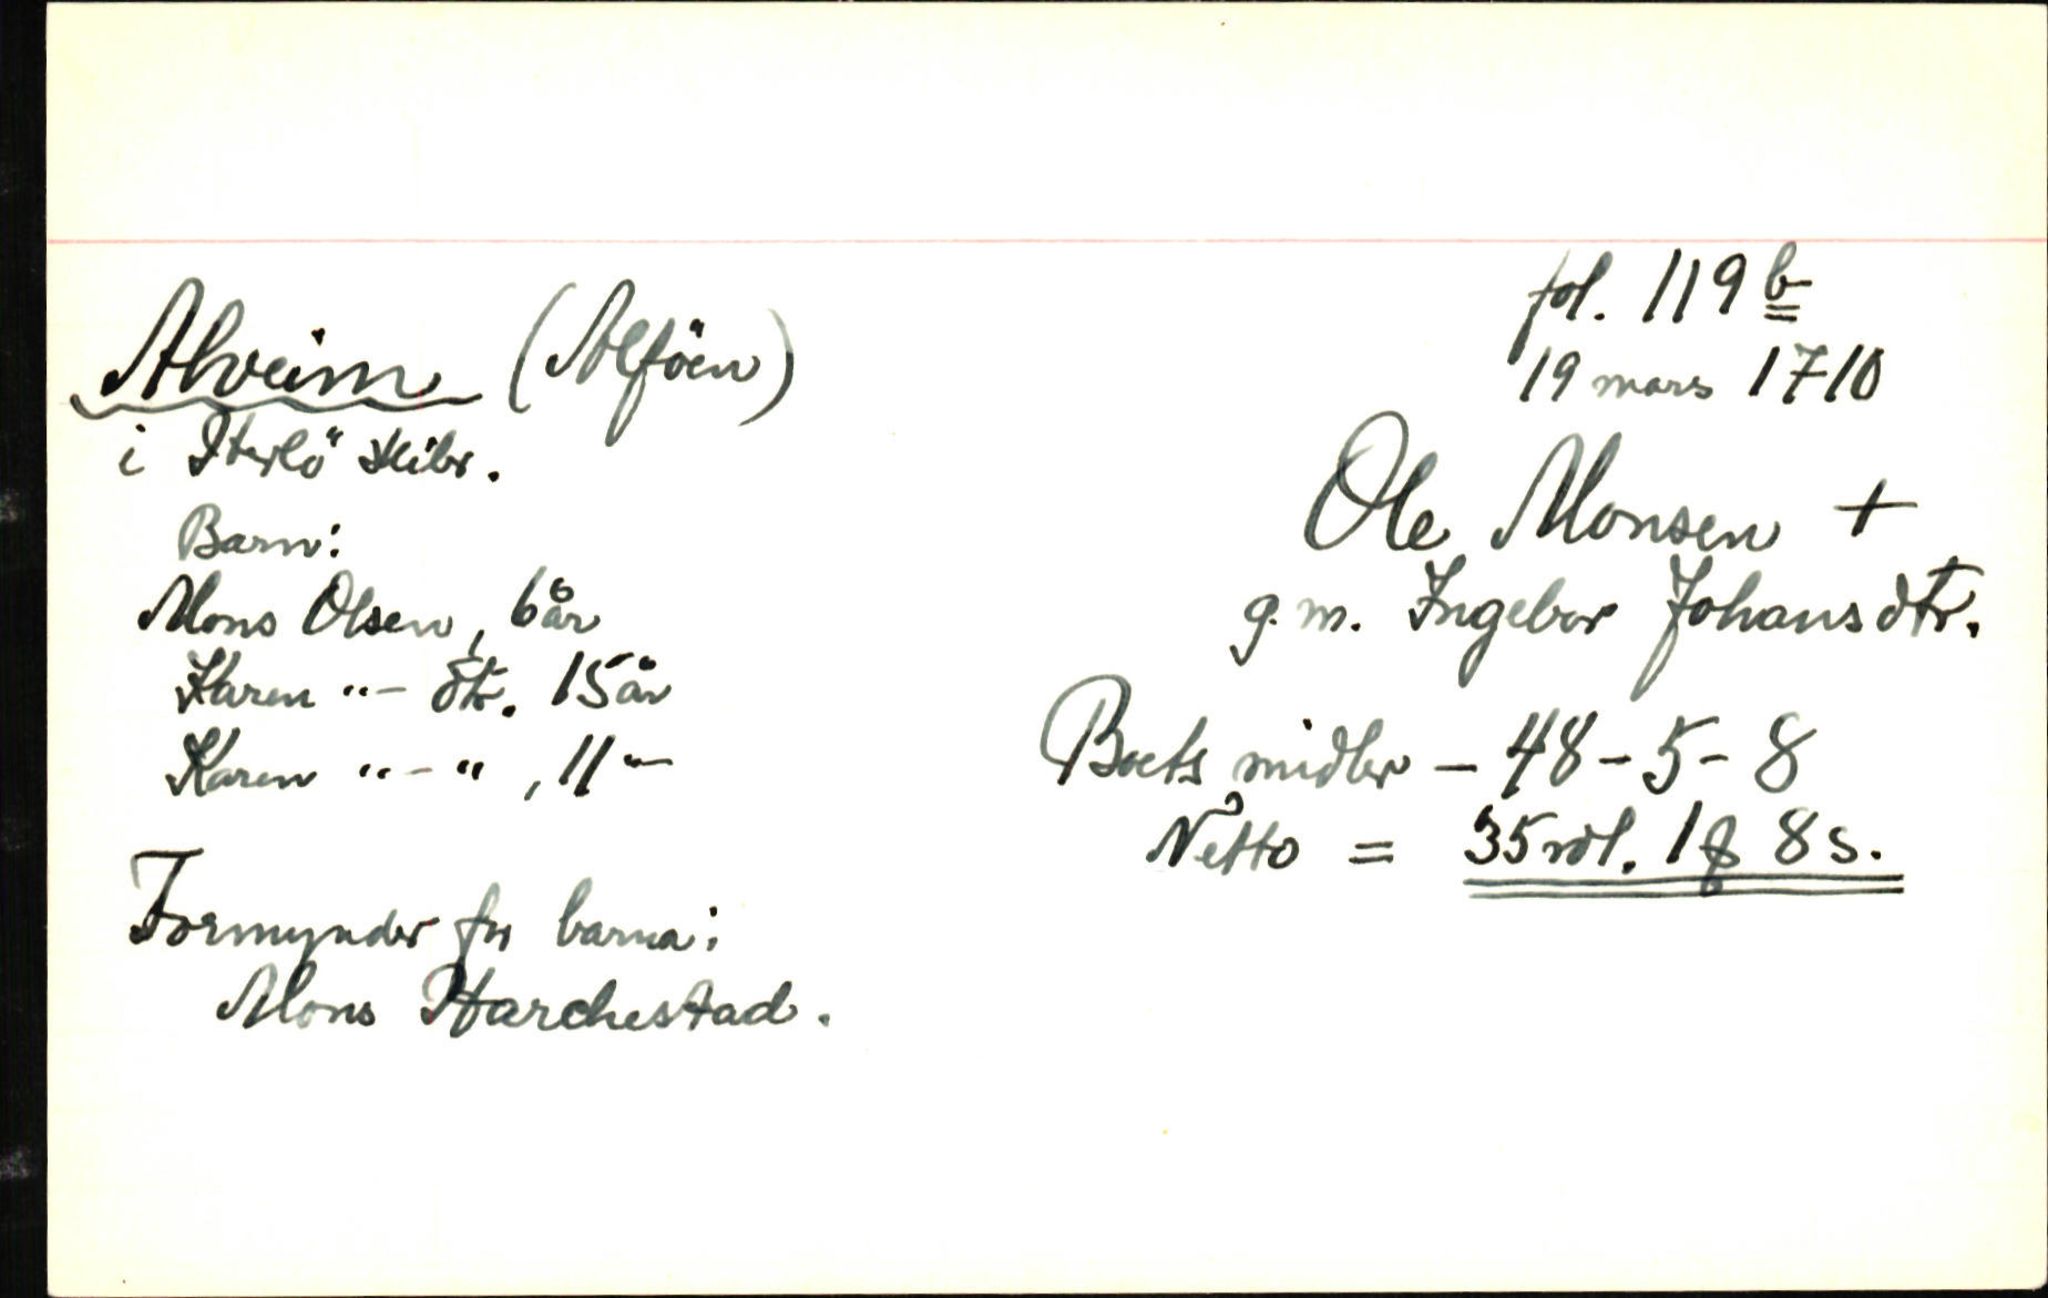 fol. 119 b
19 mars 1710
Alveim (Alföen)
i Sterlö skibr.
Ole Monsen +
g.m. Ingebor Johansdtr.
Barn:
Mons Olsen, 6 år
Karen "- dtr. 15 år
Karen "-", 11 "-
Boets midler - 48-5-8
Netto = 35 rdl. 1 8 s.
Formynder for barna:
Mons Harchestad.